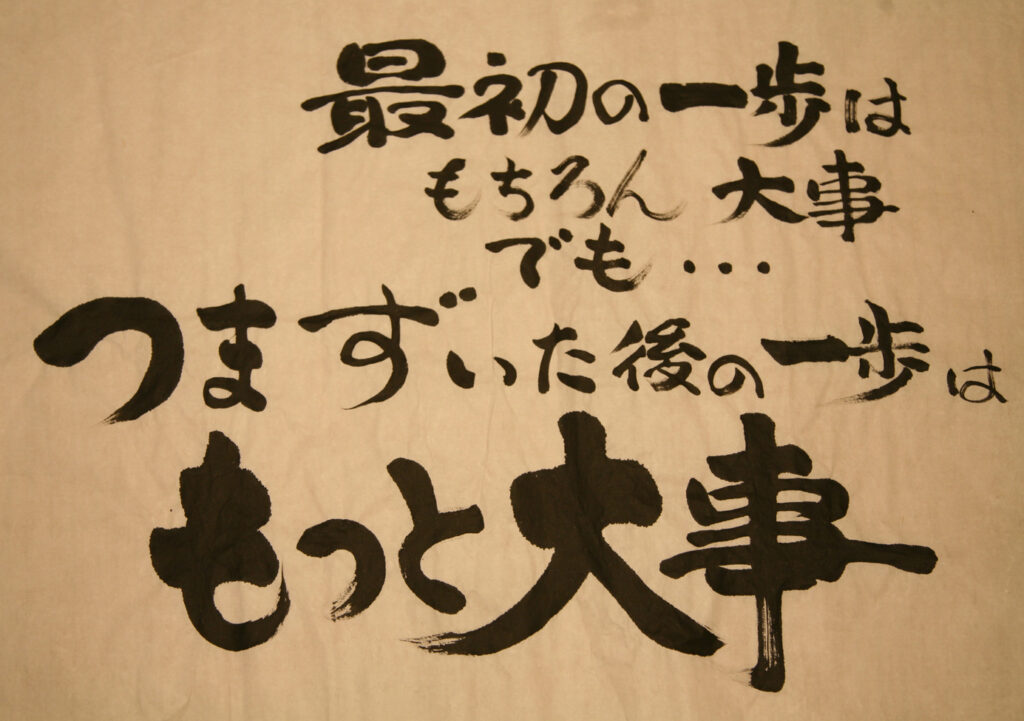 最初の一歩は
もちろん 大事
でも...
つまずいた後の一歩は
もっと大事